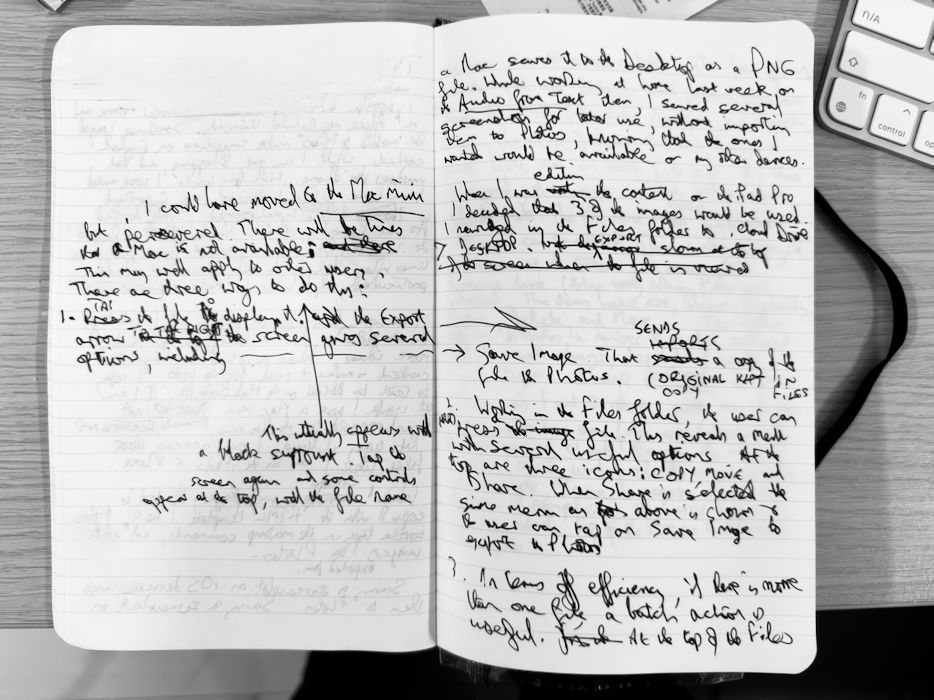 I could have moved to the Mac Mini
but persevered. There will be times
that a Mac is not available;
This may well apply to other users.
There are three ways to do this:
1. TAP the file to display it, and the Export
arrow TO THE RIGHT the screen gives several
options, including
This initially appears with
a black surround. Tap the
screen again and some controls
appear at the top, with the file name
a Mac saves it to the Desktop as a PNG
file. While working at home last week, on
an Audio from Text item, I saved several
screenshots for later use, without importing
them to Photos, knowing that the ones I
wanted would be available on my other devices.
editing
When I was the content on the iPad Pro
I decided that 3 of the images would be used
I in the Files folder to iCloud Drive
> DESKTOP but the EXPORT
file is
SENDS
→ Save Image - That a copy of the
file to Photos. (ORIGINAL KEPT IN
COPY FILES
2. Working in the Files folder, the user can
press file. This reveals a menu
with several useful options. At the
top are three icons: COPY, MOVE and
Share. When Share is selected the
same menu as above is shown &
the user can tap on Save Image to
export to Photos
3. In terms of efficiency, if there is more
than one file a batch action is
useful. At the top of the Files
n/A
fn
control
op